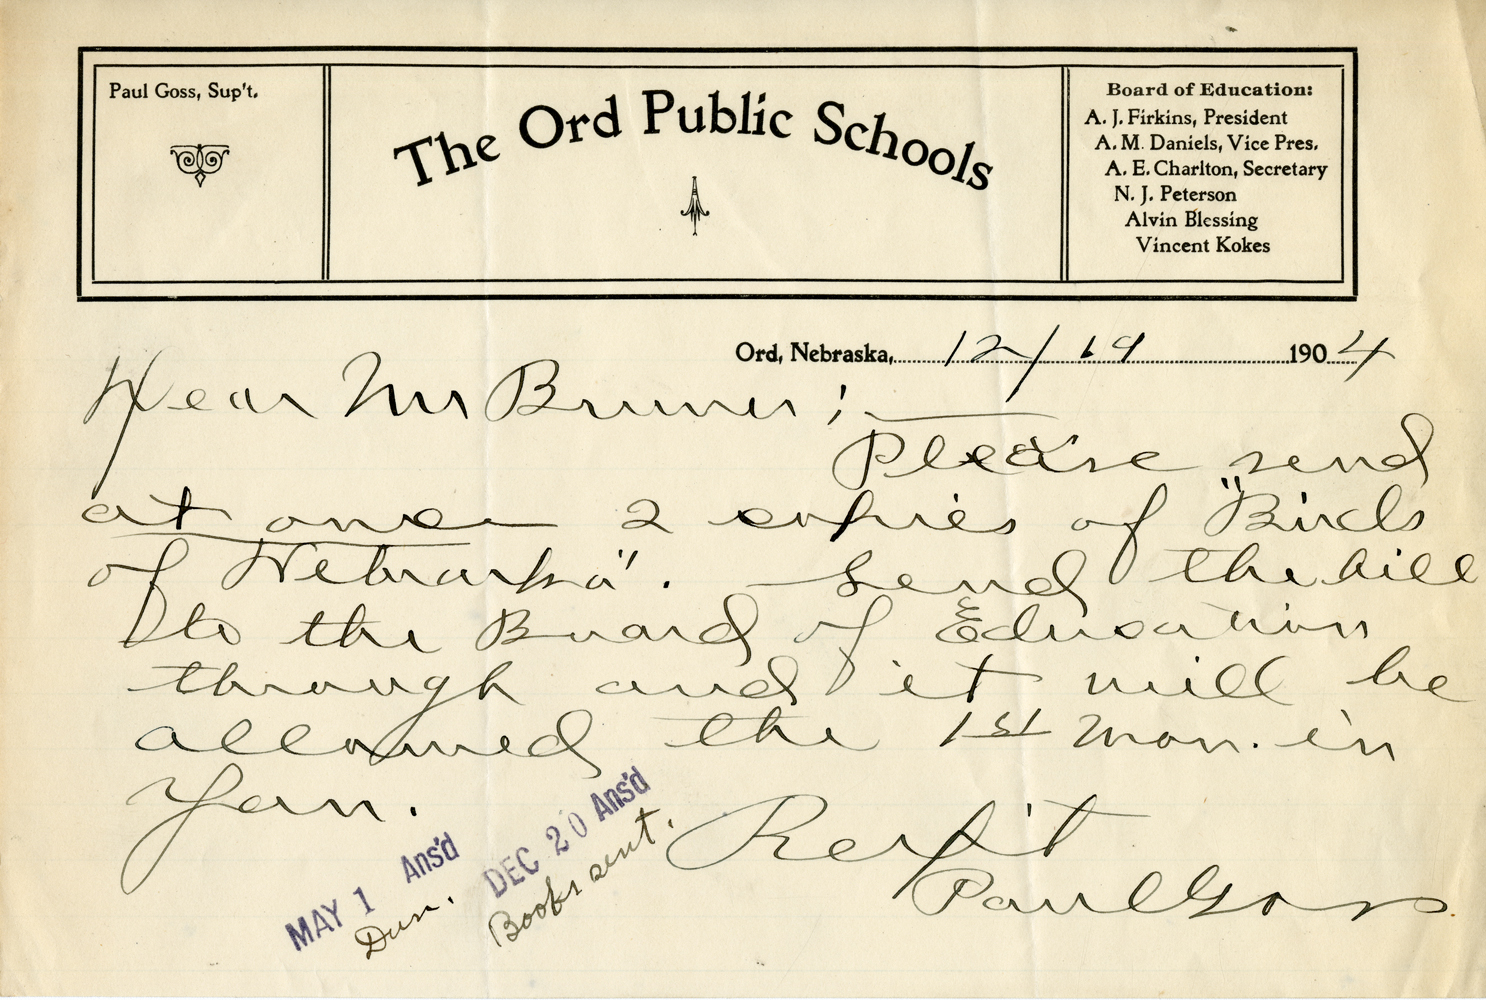 Paul Goss, Sup't.
The Ord Public Schools
Board of Education:
A. J. Firkins, President
A. M. Daniels, Vice Pres.
A. E. Charlton, Secretary
N. J. Peterson
Alvin Blessing
Vincent Kokes
Ord, Nebraska, 12/19 1904
Dear Mr Bruner;
Please send
at once 2 copies of "Birds
of Nebraska". Send the bill
to the Board of Education
through and it will be
allowed the 1st Mon. in
Jan.
Resp't
Paul Goss
MAY 1 Ans'd
Dun.
DEC 20 Ans'd
Books sent.